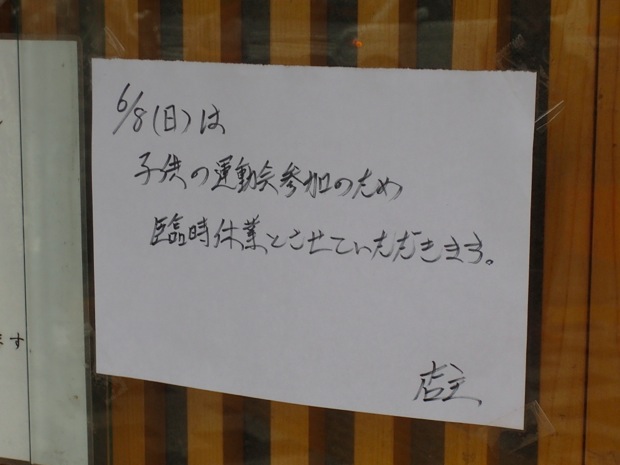 6/8(日)は
子供の運動会参加のため
臨時休業とさせていただきます。
店主
ます